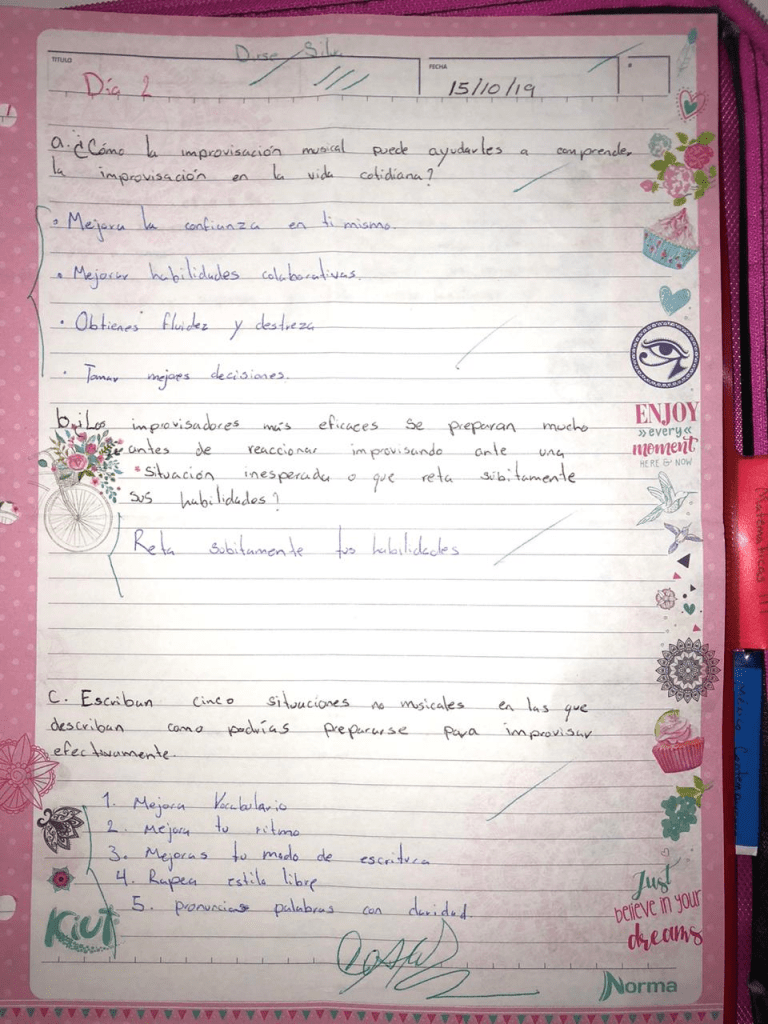 TITULO
FECHA
Día 2
15/10/19
a. ¿Cómo la improvisación musical puede ayudarles a comprender
la improvisación en la vida cotidiana?
• Mejora la confianza en ti mismo.
• Mejorar habilidades colaborativas.
• Obtienes fluidez y destreza
• Tomar mejores decisiones.
b. ¿Los improvisadores más eficaces se preparan mucho
antes de reaccionar improvisando ante una
situación inesperada o que reta súbitamente
sus habilidades?
Reta subitamente tus habilidades
C. Escriban cinco situaciones no musicales en las que
describan como podrías prepararse para improvisar
efectivamente.
1. Mejora Vocabulario
2. Mejora tu ritmo
3. Mejoras tu modo de escritura
4. Rapea estilo libre
5. pronuncias palabras con claridad.
ENJOY
»every«
moment
HERE & NOW
Just
believe in your
dreams
Kiut
Norma
Matematicas III